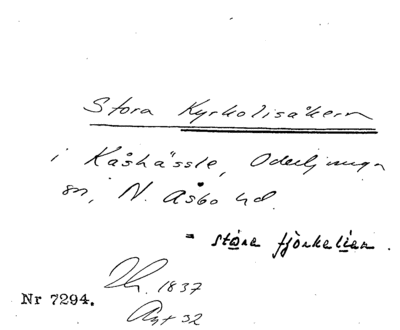 Stora Kyrkolisåkern
i Kåshässle, Oderljunga
sn, N. Åsbo hd.
= störe fjörkelien.
1837
Nr 7294.
Avt 32